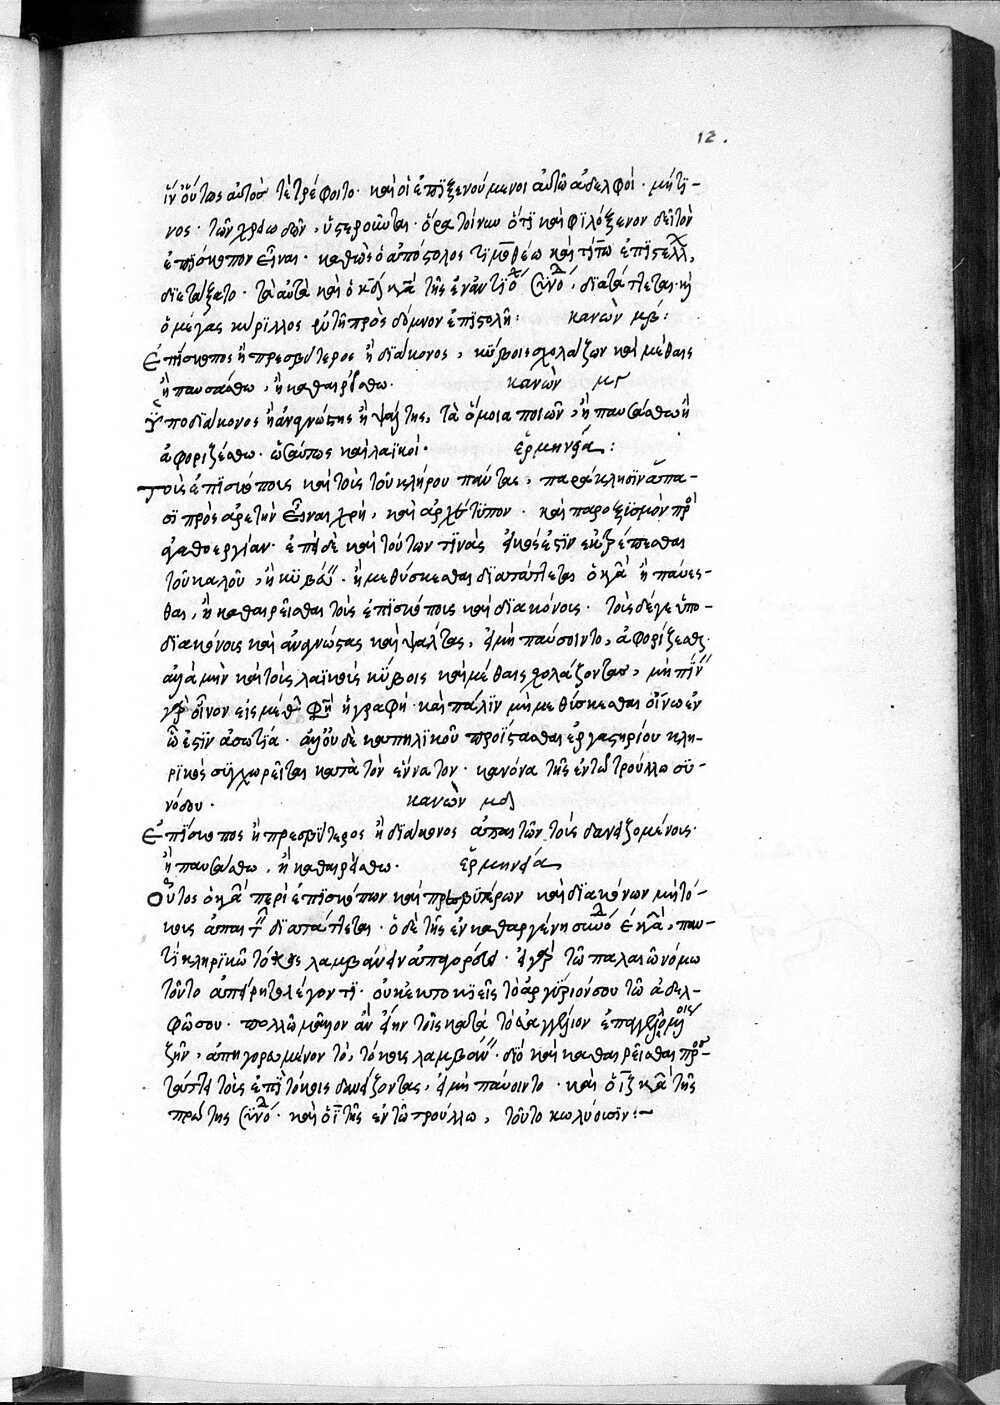 12.
ἵν οὕτως αὐτός τε τρέφοιτο· καὶ οἱ ἐπιξενούμενοι αὐτῶ ἀδελφοί· μή τι-
νος· τῶν χρειωδῶν, ὑστεροῦνται· ὅρα τοίνυν ὅτι καὶ φιλόξενον δεῖ τὸν
ἐπίσκοπον εἶναι· καθὼς ὁ ἀπόστολος τιμοθέω καὶ τίτω ἐπιστέλλ,
διετάξατο· τὰ αὐτὰ καὶ ὁ κδ καν τῆς ἐν ἀντιο συνό, διατάττεται· κὴ
ὁ μέγας κύριλλος ἐν τῆ πρὸς δόμνον ἐπιστολῆ: κανὼν μβ:
Ἐπίσκοπος ἢ πρεσβύτερος ἢ διάκονος, κύβοις σχολάζων καὶ μέθαις
ἢ παυσάσθω, ἢ καθαιρείσθω. κανὼν μγ
Ὑποδιάκονος ἢ ἀναγνώστης ἢ ψάλτης, τὰ ὅμοια ποιῶν, ἢ παυσάσθω ἢ
ἀφοριζέσθω· ὡσαύτως καὶ λαϊκοί· ἑρμηνεία:
Τοὺς ἐπισκόπους καὶ τοὺς τοῦ κλήρου πάντας, παράκλησιν ἅπα-
σι πρὸς ἀρετὴν εἶναι χρὴ, καὶ ἀρχέτυπον· καὶ παροξυσμὸν πρὸ
ἀγαθοεργίαν· ἐπεὶ δὲ καὶ τούτων τινὰς εἰκός ἐστιν ἐκτρέπεσθαι
τοῦ καλοῦ, ἢ κυβεύ· ἢ μεθύσκεσθαι διαπάττεται ὁ καν ἢ παύεσ-
θαι, ἢ καθαιρεῖσθαι τοὺς ἐπισκόπους καὶ διακόνους· τοὺς δέ γε ὑπο-
διακόνους καὶ ἀναγνώστας καὶ ψάλτας, εἰ μὴ παύσοιντο, ἀφορίζεσθαι·
ἀλλὰ μὴν καὶ τοὺς λαϊκοὺς κύβοις καὶ μέθαις σχολάζοντας, μὴ πίν
γὰρ οἶνον εἰς μέθην φησὶν ἡ γραφή· καὶ πάλιν μὴ μεθύσκεσθαι οἴνω ἐν
ὧ ἐστὶν ἀσωτία· ἀλλ οὐδὲ καπηλικοῦ προΐστασθαι ἐργαστηρίου κλη-
ρικὸς συγχωρεῖται κατὰ τὸν ἔννατον· κανόνα τῆς ἐν τῶ τρούλλω συ-
νόδου· κανὼν μδ
Ἐπίσκοπος ἢ πρεσβύτερος ἢ διάκονος ἀπαιτῶν τοὺς δανειζομένους·
ἢ παυσάσθω, ἢ καθαιρείσθω· ἑρμηνεία
Οὗτος ὁ καν περὶ ἐπισκόπων καὶ πρεσβυτέρων καὶ διακόνων μὴ τό-
κους ἀπαιτ διαπάττεται· ὁ δὲ τῆς ἐν καθαργένη συνό ε καν, παν-
τὶ κληρικῶ τόκους λαμβάνειν ἀπαγορεύει· εἰ γὰρ τῶ παλαιῶ νόμω
τοῦτο ἀπείρηται λέγοντι· οὐκ ἐκτοκιεῖς τὸ ἀργύριόν σου τῶ ἀδελ-
φῶ σου· πολλῶ μᾶλλον ἂν εἴην τοῖς κατὰ τὸ εὐαγγέλιον ἐπαγγελλομένοις
ζῆν, ἀπηγορωμένον τὸ, τόκους λαμβάν· διό καὶ καθαιρεῖσθαι προσ-
τάττει τοὺς ἐπὶ τόκοις δανείζοντας, εἰ μὴ παύοιντο· καὶ ὁ ιζ καν τῆς
πρώτης συνό· καὶ ὁ ι τῆς ἐν τῶ τρούλλω, τοῦτο κωλύουσιν:~